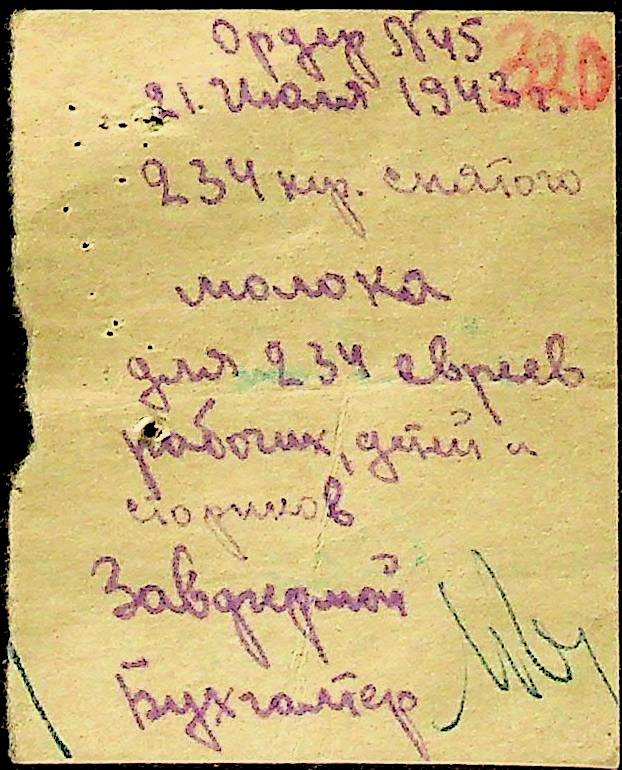 Ордер №45
320
21. Июля 1943 г.
234 кгр. снятого
молока
для 234 евреев
рабочих, детей и
стариков
Завфермой
Бухгалтер